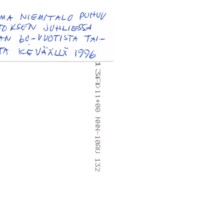 MA NIEMITALO PUHUU
TOKSEN JUHLIESSA
AN 60-VUOTISTA TAI-
TA KEVÄÄLLÄ 1996
NNN-100U 132